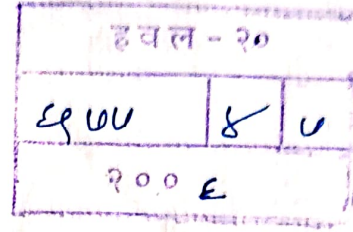 हवल - २०
६५७७ | ४ | ७
२००६